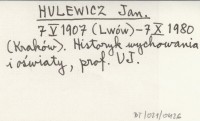 HULEWICZ Jan.
7 V 1907 (Lwów) – 7 X 1980
(Kraków). Historyk wychowania
i oświaty, prof. UJ.